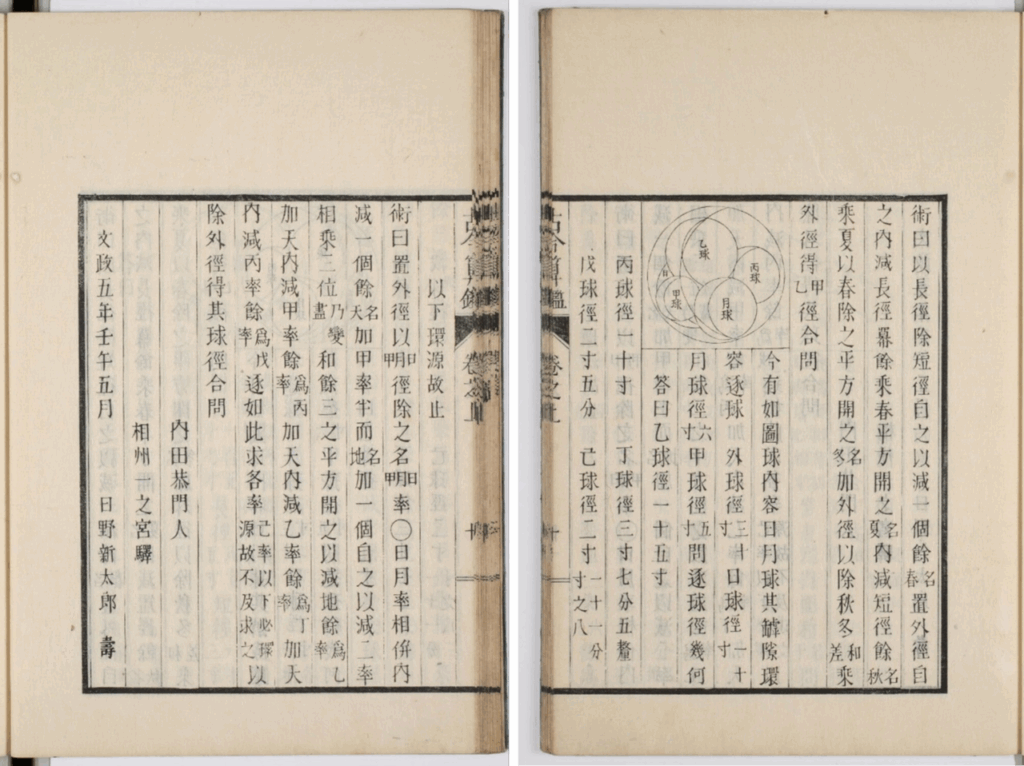 術曰以長徑除短徑自之以減一個餘名春置外徑自
之內減長徑冪餘乘春平方開之名夏內減短徑餘名秋
乘夏以春除之平方開之名冬加外徑以除秋冬和差乘
外徑得甲乙徑合問
乙球
丙球
日
甲球
月球
今有如圖球內容日月球其罅隙環
容逐球外球徑三十寸日球徑一十寸
月球徑六寸甲球徑五寸問逐球徑幾何
答曰乙球徑一十五寸
丙球徑一十寸 丁球徑三寸七分五釐
戊球徑二寸五分 己球徑二寸一十一分寸之八
古今算鑑 卷之上
以下環源故止
術曰置外徑以日月甲徑除之名日月甲率〇日月率相併內
減一個餘名天加甲率半而名地加一個自之以減二率
相乘三位乃變盡和餘三之平方開之以減地餘爲乙率
加天內減甲率餘爲丙率加天內減乙率餘爲丁率加天
內減丙率餘爲戊率逐如此求各率己率以下必環源故不及求之以
除外徑得其球徑合問
內田恭門人
相州一之宮驛
文政五年壬午五月 日野新太郎 壽